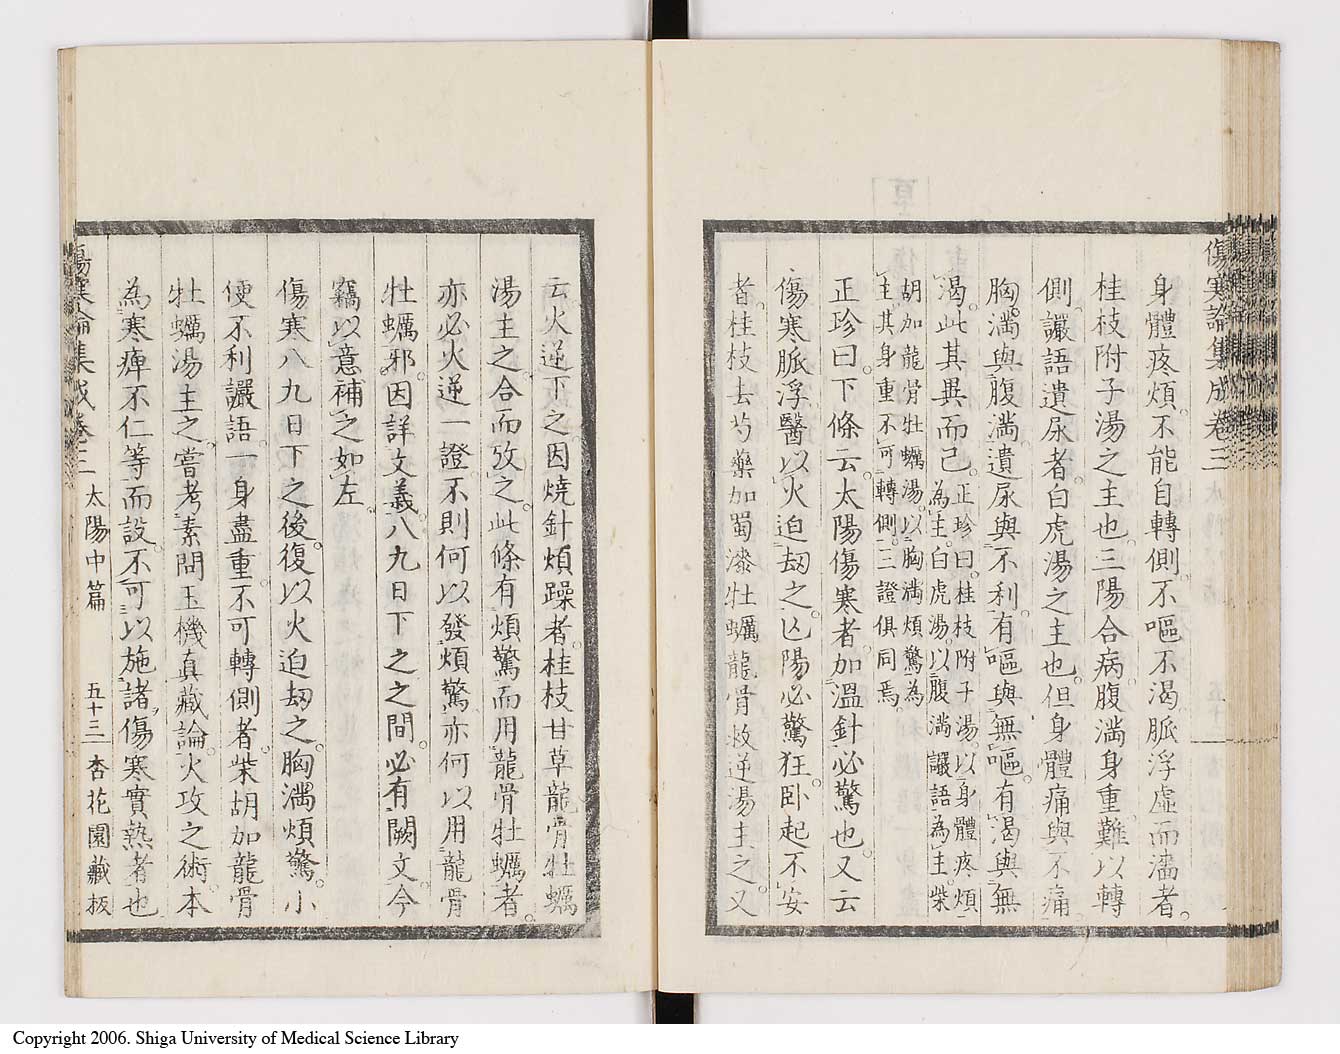 傷寒論集成卷三
身體疼煩。不能自轉側。不嘔不渴脈浮虛而濇者。
桂枝附子湯之主也。三陽合病。腹滿身重。難以轉
側。讝語遺尿者。白虎湯之主也。但身體痛與不痛。
胸滿與腹滿。遺尿與不利。有嘔與無嘔。有渴與無
渴。此其異而已。正珍曰。桂枝附子湯。以身體疼煩
為主。白虎湯。以腹滿讝語為主。柴
胡加龍骨牡蠣湯。以胸滿煩驚為
主。其身重不可轉側。三證俱同焉。
正珍曰。下條云。太陽傷寒者。加溫針必驚也。又云
傷寒脈浮。醫以火迫劫之。亡陽必驚狂。臥起不安
者。桂枝去芍藥加蜀漆牡蠣龍骨救逆湯主之。又
云。火逆下之。因燒針煩躁者。桂枝甘草龍骨牡蠣
湯主之。合而攷之。此條有煩驚而用龍骨牡蠣者。
亦必火逆一證。不則何以發煩驚。亦何以用龍骨
牡蠣邪。因詳文義。八九日下之之間。必有闕文。今
竊以意補之如左。
傷寒八九日下之後。復以火迫劫之。胸滿煩驚。小
便不利。讝語。一身盡重。不可轉側者。柴胡加龍骨
牡蠣湯主之。嘗考素問玉機真藏論。火攻之術。本
為寒痺不仁等而設。不可以施諸傷寒實熱者也
傷寒論集成卷三 太陽中篇 五十三 杏花園藏板
Copyright 2006. Shiga University of Medical Science Library